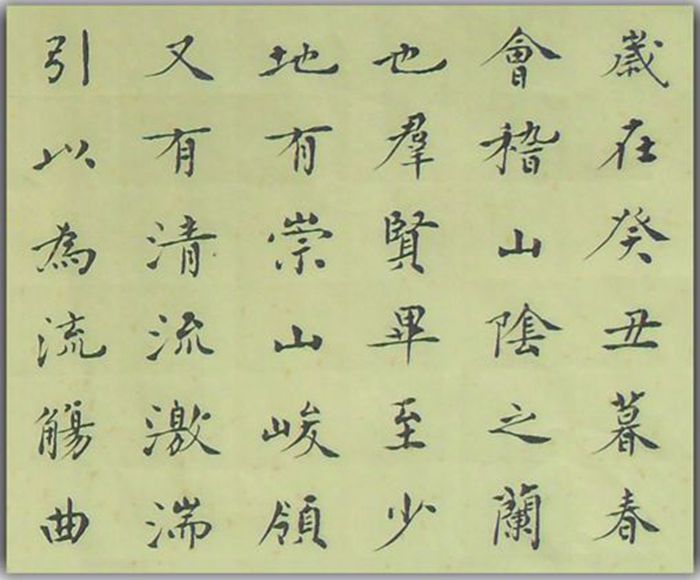 歲在癸丑暮春
會稽山陰之蘭
也羣賢畢至少
地有崇山峻領
又有清流激湍
引以為流觴曲